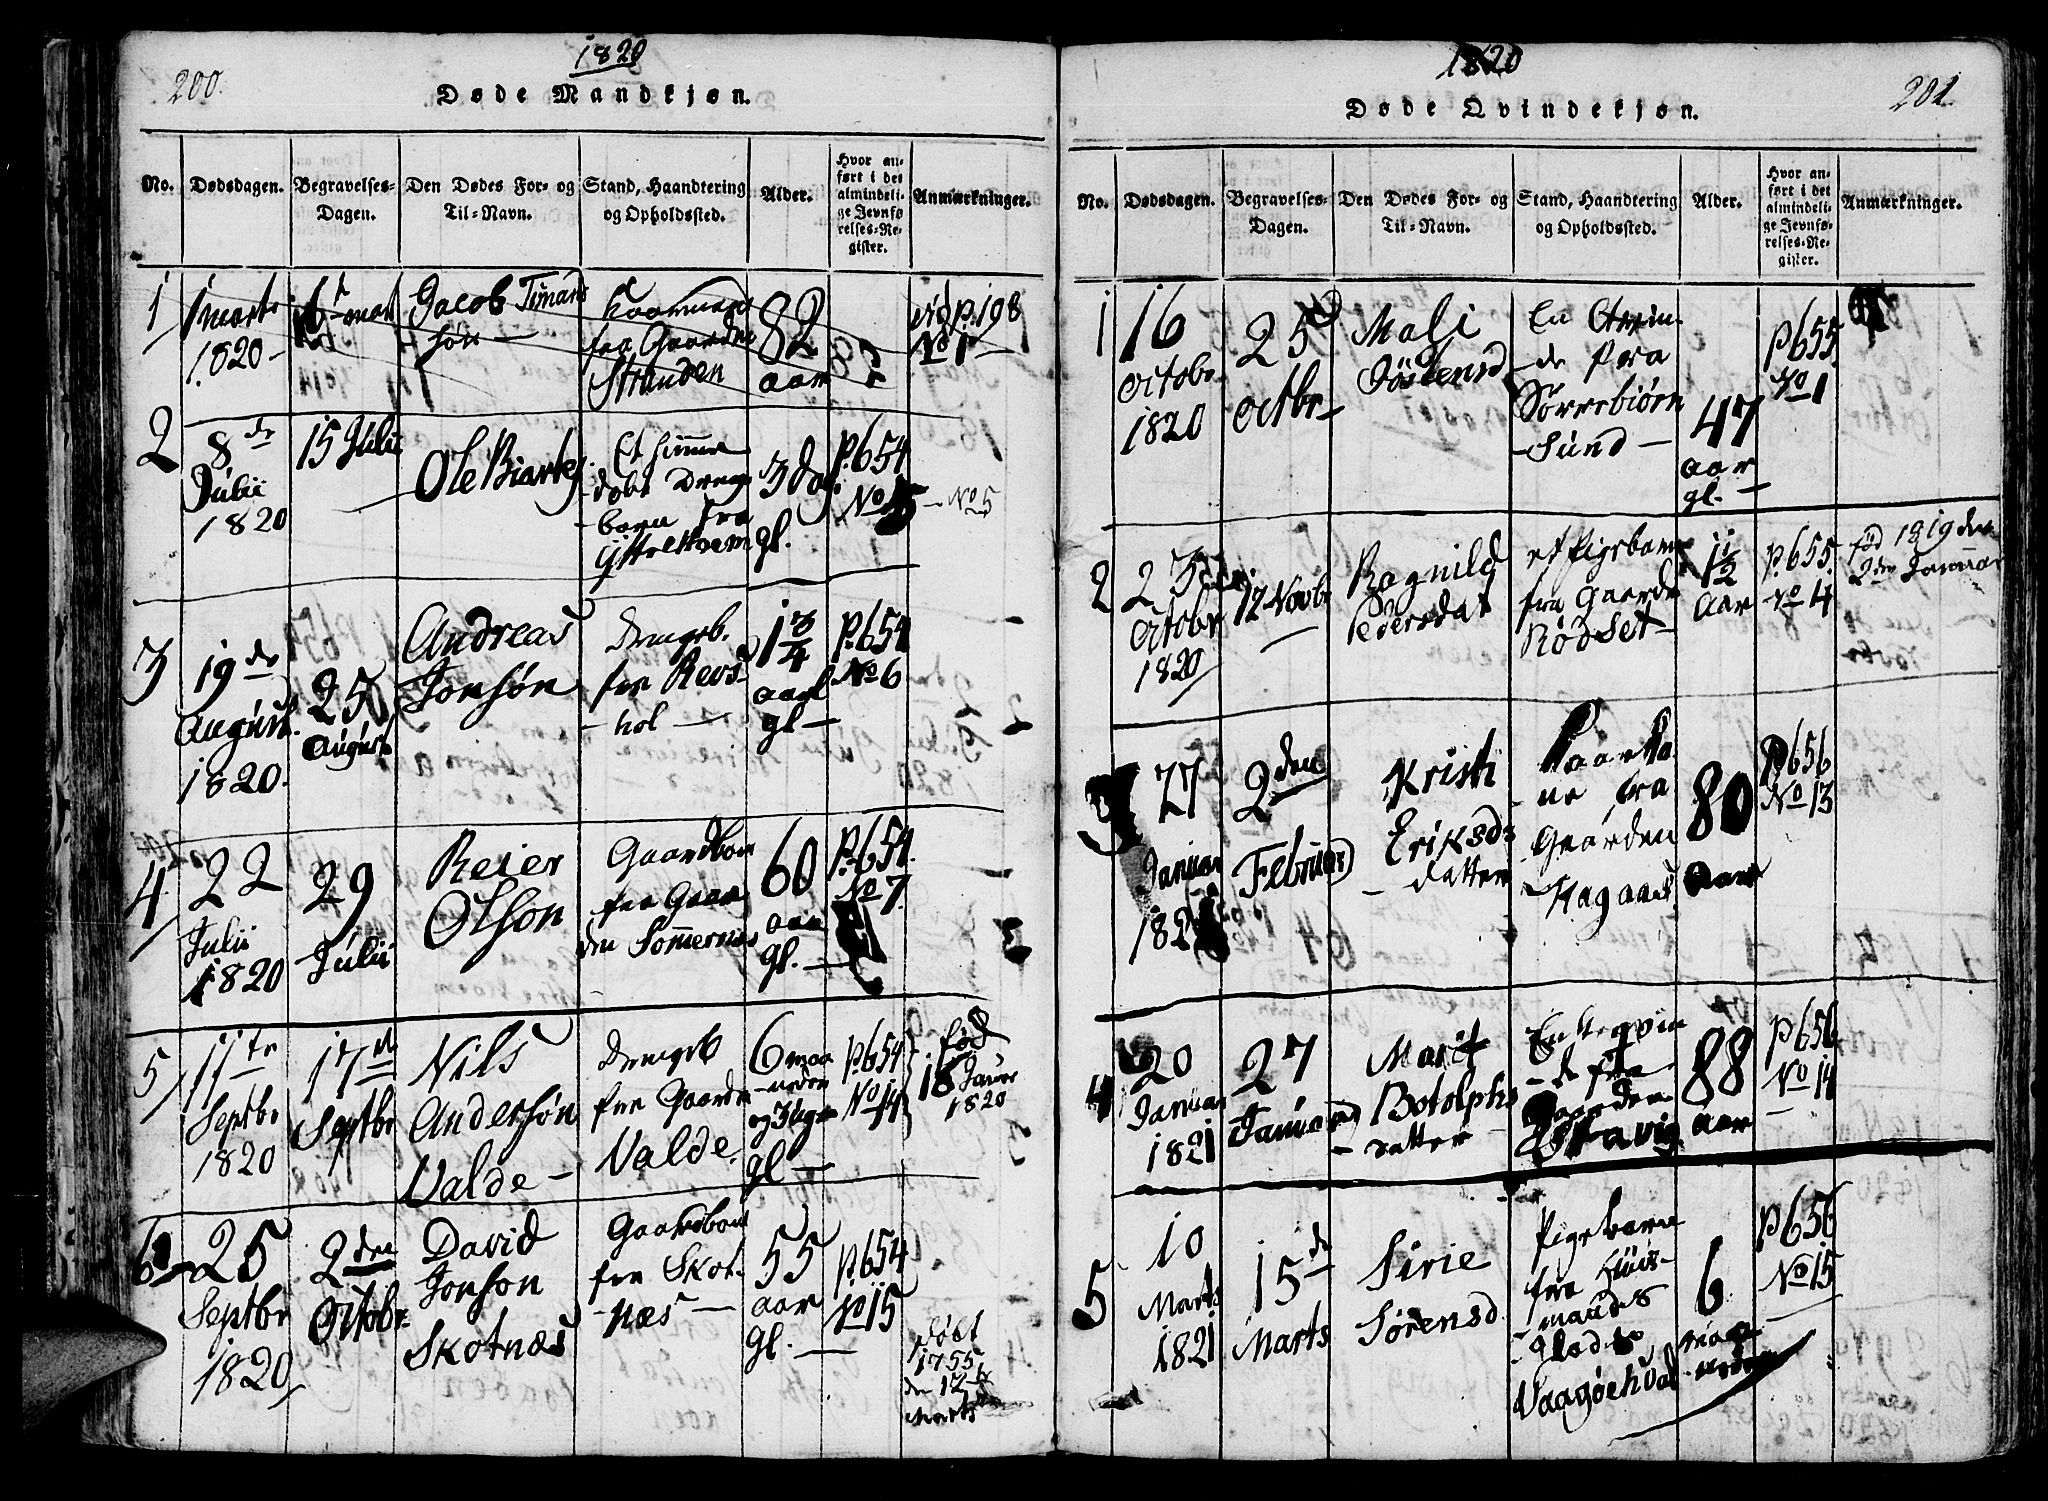 200.
1820
Døde Mandkjøn.
No.
Dødsdagen.
Begravelses-
Dagen.
Den Dødes For- og
Til-Navn.
Stand, Haandtering
og Opholdssted.
Alder.
Hvor an-
ført i det
almindeli-
ge Jevnfø-
relses-Re-
gister.
Anmærkninger.
1
1 marts
1820
Jacob Timans
søn
fra Gaarden
Stranden
82
aar
vid p. 198
No 1
2
8de
Julii
1820
15 Julii
Ole Biartes
Et hiemme
døbt Drenge
barn fra
3 da
gl.
P. 654
No 5
No 5
3
19de
August
1820.
25
August
Andreas
Jonsøn
Drengeb.
fra Revs
hol
1 3/4
aar
gl
P. 654
No 6
4
22
Julii
1820
29
Julii
Reier
Olson
Gaardbon
fra Gaar
den Sommernes
60
aar
gl.
P. 654.
No 7.
5
11te
Septbr
1820
17de
Septbr
Nils
Andersøn
Valde
Drengeb
fra Gaarde
Valde.
6 maa
neder
og 3 uger
gl
P. 654
No 14
fød
18 Janer
1820
6
25
Septbr
1820
2den
Octobr
David
Jonson
Skotnæs
Gaardbon
fra Skot
næs
55
aar
gl.
P. 654
No 15
døbt
1755
den 12te
Marts
1820
201.
Døde Qvindekjøn.
No.
Dødsdagen.
Begravelses-
Dagen.
Den Dødes For- og
Til-Navn.
Stand, Haandtering
og Opholdssted.
Alder.
Hvor an-
ført i det
almindeli-
ge Jevnfø-
relses-Re-
gister.
Anmærkninger.
1
16
Octobr
1820
25
Octbr
Mali
Jöstensd
de fra
Sørrebiørn
Sund
47
aar
gl.
P. 655.
No 1
2
23
Octobr
1820
12 Novbr
Ragnild
Pedersdat
et Pigebarn
fra Gaarde
Rødset
1 1/2
Aar
P. 655.
No 4
fød 1819 den
2den Januar
3
27
Januar
1821
2den
Februar
Kristi
Eriksds
datter
Kaarko
ne fra
Gaarden
Hagaas
80
aar
P. 656
No 13
4
20
Januar
1821
27
Januar
Marit
Botolphs
datter
Enkeqvin
de fra
Gaarden
88
aar
P. 656
No 14
5
10
Marts
1821
15de
Marts
Sirie
Sørensd
Pigebarn
fra Huus-
mands
Plads
6
maa
neder
P. 656
No 15